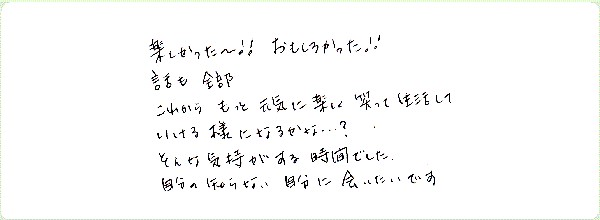 楽しかった〜!! おもしろかった!!
話も 全部
これから もっと 元気に楽しく 笑って生活して
いける様になるかな…?
そんな気持がする時間でした.
自分の知らない 自分に 会いたいです